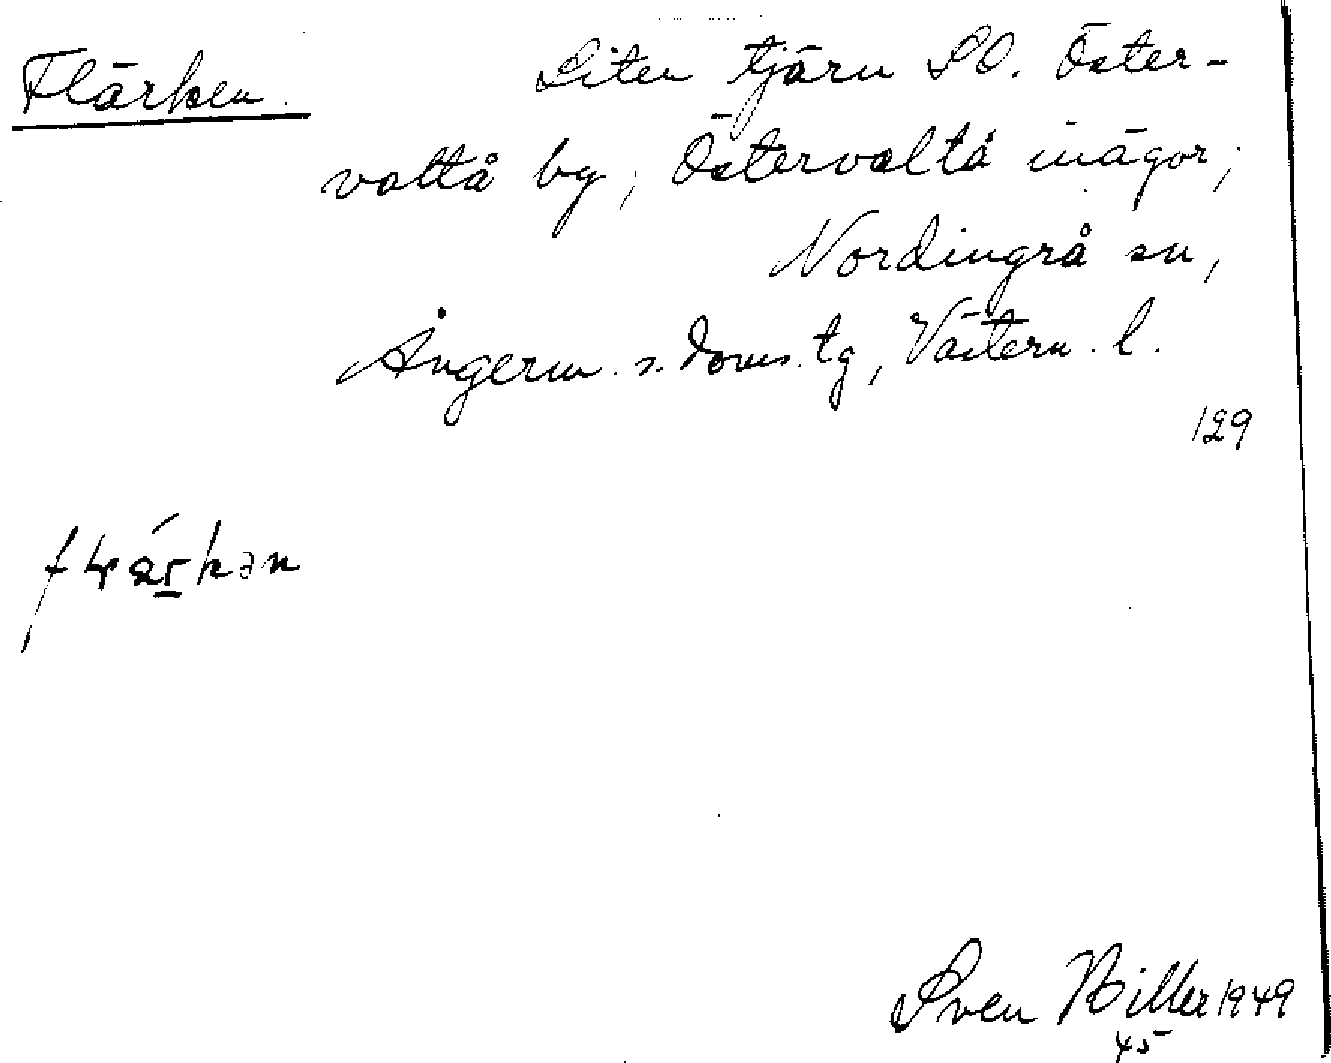 Flärken.
Liten tjärn SO. Öster-
valtå by, Östervaltå inägor,
Nordingrå sn,
Ångerm. s. doms. tg, Västern. l.
129
Sven Biller 1949
45